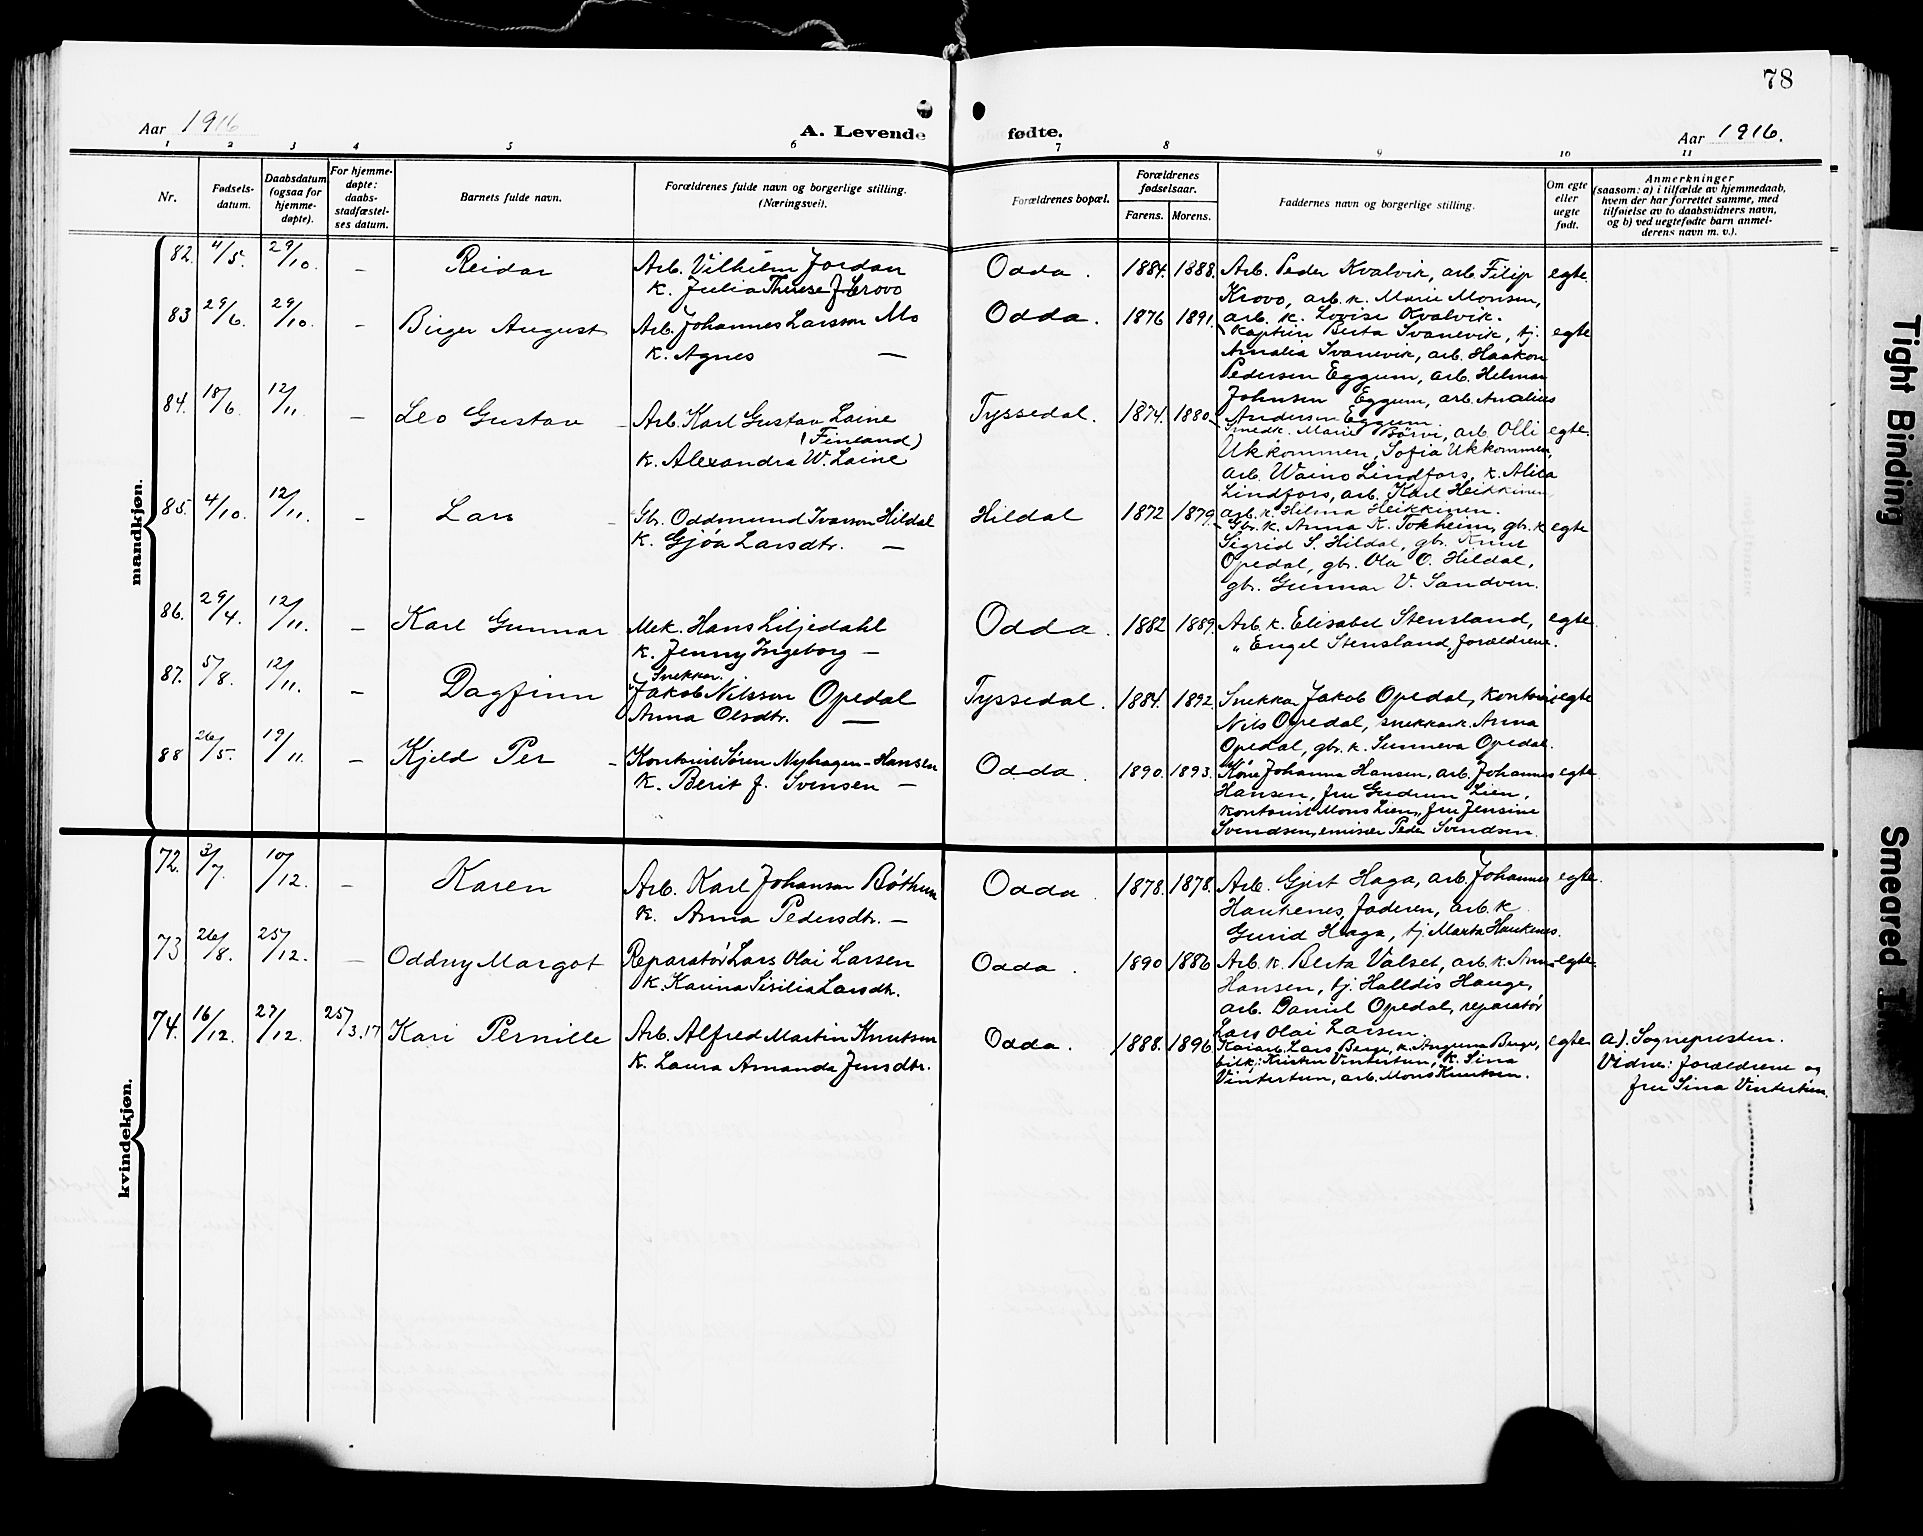 78
Aar 1916
A. Levende fødte.
Aar 1916.
1 2 3 4 5 6 7 8 9 10 11
Nr.
Fødsels-
datum.
Daabsdatum
(ogsaa for
hjemme-
døpte).
For hjemme-
døpte:
daabs-
stadfæstel-
ses datum.
Barnets fulde navn.
Forældrenes fulde navn og borgerlige stilling.
(Næringsvei).
Forældrenes bopæl.
Forældrenes
fødselsaar.
Farens. Morens.
Faddernes navn og borgerlige stilling.
Om egte
eller
uegte
født.
Anmerkninger
(saasom: a) i tilfælde av hjemmedaab,
hvem der har forrettet samme, med
tilføielse av to daabsvidners navn,
og b) ved uegtefødte barn anmel-
derens navn m. v.).
mandkjøn.
82. 4/5. 29/10. – Reidar
Arb. Vilhelm Jordan
k. Julia Therese Krovo
Odda. 1884. 1888.
Arb. Peder Kvalvik, arb. Filip
Krovo, arb. k. Marie Monsen,
arb. k. Lovise Kvalvik.
egte.
83 29/6. 29/10. – Birger August
Arb. Johannes Larsson Mo
k. Agnes —
Odda. 1876 1891.
Kaptein Berta Svanevik, tj.
Amalia Svanevik, arb. Haakon
Pedersen Eggum, arb. Helmar
Johnsen Eggum, arb. Analius
Andersen Eggum.
egte
84. 18/6. 12/11. – Leo Gustav
Arb. Karl Gustav Laine
(Finland)
k. Alexandra W. Laine
Tyssedal. 1874. 1880.
Smedk. Marie Børve, arb. Olli
Ukkommen, Sofia Ukkommen,
arb. Waino Lindfors, k. Alisa
Lindfors, arb. Karl Heikkinen,
arb. k. Hilma Heikkinen.
egte.
85. 4/10. 12/11. – Lars
Gbr. Oddmund Ivarson Hildal
k. Gjøa Larsdtr. —
Hildal 1872 1879.
Gbr. k. Anna K. Tokheim, gbr. k
Sigrid S. Hildal, gbr. Knut
Opedal, gbr. Ola O. Hildal,
gbr. Gunnar V. Sandven.
egte
86. 29/4. 12/11. – Karl Gunnar
Mek. Hans Liljedahl
k. Jenny Ingeborg —
Odda. 1882 1889.
Arb. k. Elisabet Stensland,
„ Engel Stensland, forældrene.
egte.
87. 5/8. 12/11. – Dagfinn
Snekker.
Jakob Nilsson Opedal
Anna Olsdtr. —
Tyssedal. 1884. 1892
Snekker Jakob Opedal, kontorist
Nils Opedal, snekkerk. Anna
Opedal, gbr. k. Sunneva Opedal.
egte
88 26/5. 19/11. – Kjeld Per
Kontorist Søren Nyhagen-Hansen
k. Berit J. Svensen —
Odda. 1890. 1893.
Kone Johanna Hansen, arb. Johannes
Hansen, fru Gudrun Lien,
kontorist Mons Lien, fru Jensine
Svendsen, emissær Peder Svendsen.
egte.
kvindekjøn.
72. 3/7. 10/12. – Karen
Arb. Karl Johanson Bøthun
k. Anna Pedersdtr. —
Odda. 1878. 1878.
Arb. Gjert Haga, arb. Johannes
Haukenes, faderen, arb. k
Gurid Haga, tj. Marta Haukenes.
egte.
73 26/8. 25/12. – Oddny Margot
Reparatør Lars Olai Larsen
k. Karina Sisilia Larsdtr.
Odda. 1890 1886
Arb. k. Berta Valset, arb. k. Anna
Hansen, tj. Halldis Hauge,
arb. Daniel Opedal, reparatør
Lars Olai Larsen.
egte.
74. 16/12. 27/12. 25/3.17 Kari Pernille
Arb. Alfred Martin Knutsen
k. Laura Amanda Jensdtr.
Odda. 1888. 1896
Kaiarb. Lars Berge, k. Anguna Berge,
Kristen Vintertun, k. Sina
Vintertun, arb. Mons Knutsen.
egte
a). Sognepresten.
Vidner: forældrene og
fru Sina Vintertun.
Tight Binding
Smeared